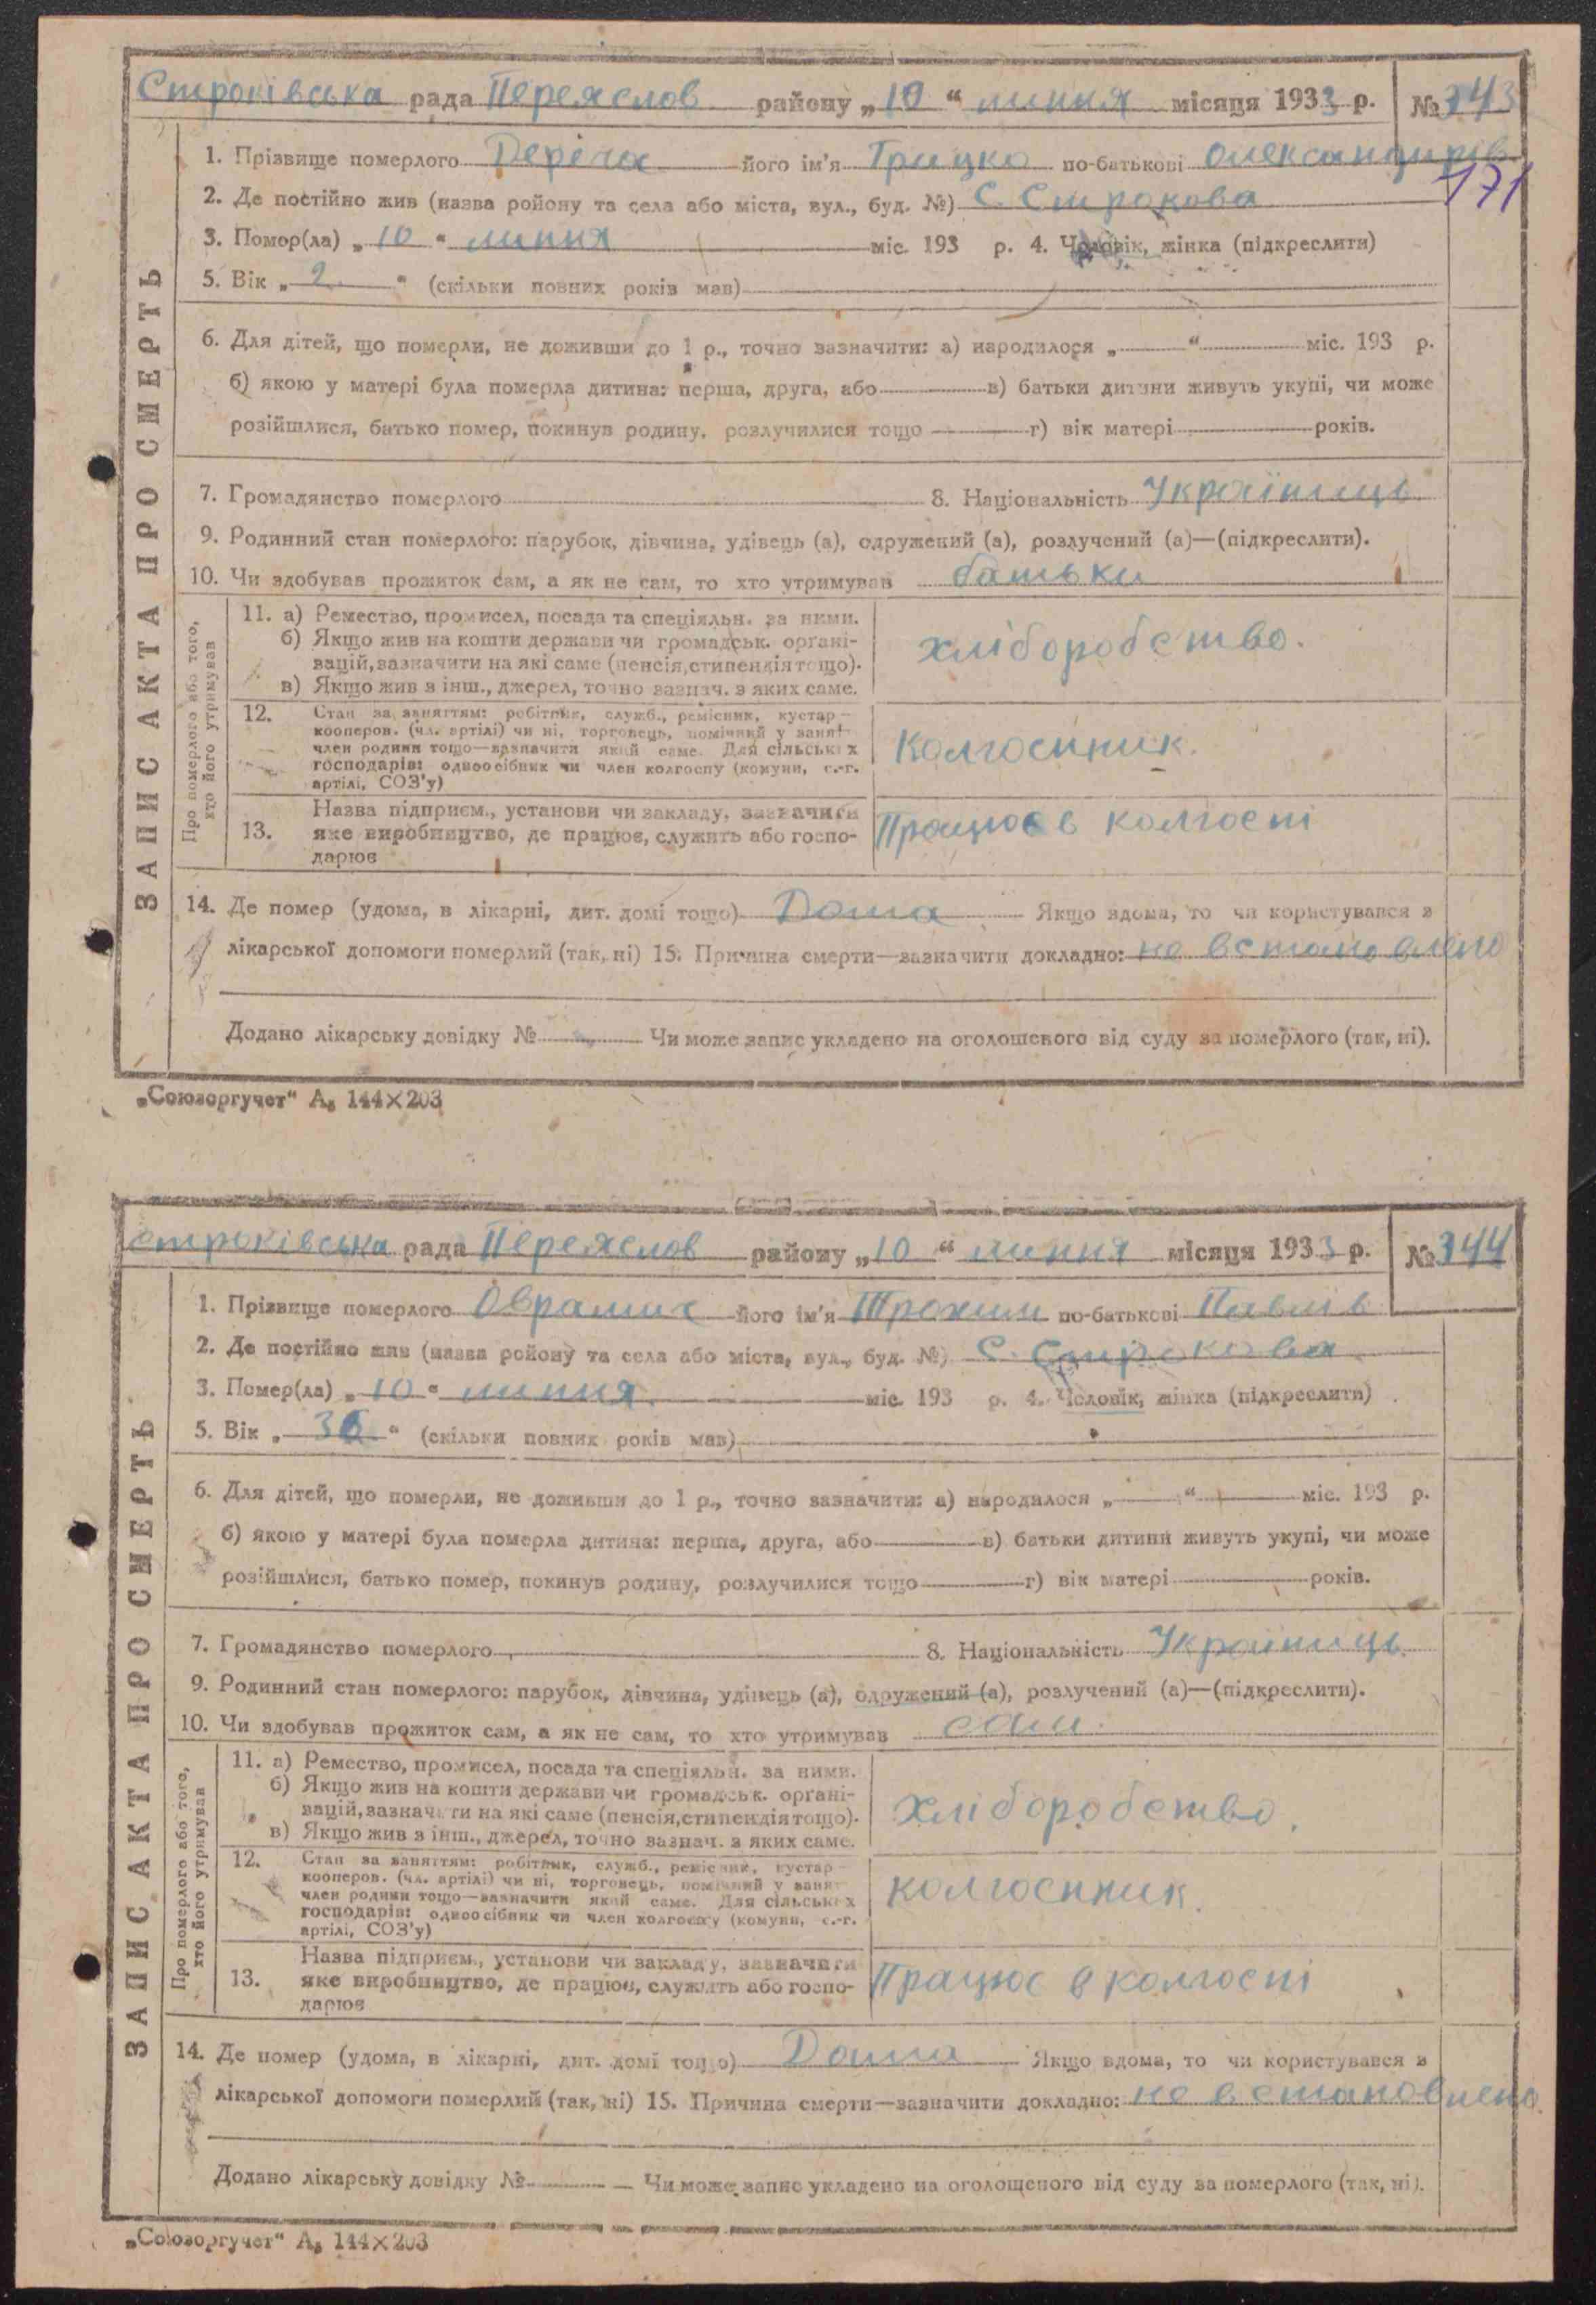 Строківська рада Переяслов району „10“ липня місяця 1933 р. № 343
1. Прізвище померлого Дереча його ім'я Грицко по-батькові Олександрів
171
2. Де постійно жив (назва ройону та села або міста, вул., буд. №) С. Строкова
3. Помер(ла) „10“ липня міс. 193 р. 4. Чоловік, жінка (підкреслити)
5. Вік „2“ (скільки повних років мав)
6. Для дітей, що померли, не доживши до 1 р., точно зазначити: а) народилося „ “ міс. 193 р.
б) якою у матері була померла дитина: перша, друга, або в) батьки дитини живуть укупі, чи може
розійшлися, батько помер, покинув родину, розлучилися тощо г) вік матері років.
7. Громадянство померлого 8. Національність Українець
9. Родинний стан померлого: парубок, дівчина, удівець (а), одружений (а), розлучений (а)—(підкреслити).
10. Чи здобував прожиток сам, а як не сам, то хто утримував батьки
ЗАПИС АКТА ПРО СМЕРТЬ
Про померлого або того, хто його утримував
11. а) Ремество, промисел, посада та спеціяльн. за ними.
б) Якщо жив на кошти держави чи громадськ. органі-
зацій, зазначити на які саме (пенсія, стипендія тощо).
в) Якщо жив з інш., джерел, точно зазнач. з яких саме.
хліборобство.
12. Стан за заняттям: робітник, служб., ремісник, кустар—
кооперов. (чл. артілі) чи ні, торговець, помічний у занят
член родини тощо—зазначити який саме. Для сільських
господарів: одноосібник чи член колгоспу (комуни, с.-г.
артілі, СОЗ'у)
колгоспник.
13. Назва підприєм., установи чи закладу, зазначити
яке виробництво, де працює, служить або госпо-
дарює
Працює в колгоспі
14. Де помер (удома, в лікарні, дит. домі тощо) Дома Якщо вдома, то чи користувався з
лікарської допомоги померлий (так, ні) 15. Причина смерти—зазначити докладно: не встановлено
Додано лікарську довідку № Чи може запис укладено на оголошеного від суду за померлого (так, ні).
„Союзоргучет“ А₅ 144×203
Строківська рада Переяслов району „10“ липня місяця 1933 р. № 344
1. Прізвище померлого Оврамич його ім'я Трохим по-батькові Павлів
2. Де постійно жив (назва ройону та села або міста, вул., буд. №) С. Строкова
3. Помер(ла) „10“ липня міс. 193 р. 4. Чоловік, жінка (підкреслити)
5. Вік „36“ (скільки повних років мав)
6. Для дітей, що померли, не доживши до 1 р., точно зазначити: а) народилося „ “ міс. 193 р.
б) якою у матері була померла дитина: перша, друга, або в) батьки дитини живуть укупі, чи може
розійшлися, батько помер, покинув родину, розлучилися тощо г) вік матері років.
7. Громадянство померлого 8. Національність Українець
9. Родинний стан померлого: парубок, дівчина, удівець (а), одружений (а), розлучений (а)—(підкреслити).
10. Чи здобував прожиток сам, а як не сам, то хто утримував сам.
ЗАПИС АКТА ПРО СМЕРТЬ
Про померлого або того, хто його утримував
11. а) Ремество, промисел, посада та спеціяльн. за ними.
б) Якщо жив на кошти держави чи громадськ. органі-
зацій, зазначити на які саме (пенсія, стипендія тощо).
в) Якщо жив з інш., джерел, точно зазнач. з яких саме.
Хліборобство.
12. Стан за заняттям: робітник, служб., ремісник, кустар—
кооперов. (чл. артілі) чи ні, торговець, помічний у занят
член родини тощо—зазначити який саме. Для сільських
господарів: одноосібник чи член колгоспу (комуни, с.-г.
артілі, СОЗ'у)
колгоспник.
13. Назва підприєм., установи чи закладу, зазначити
яке виробництво, де працює, служить або госпо-
дарює
Працює в колгоспі
14. Де помер (удома, в лікарні, дит. домі тощо) Дома Якщо вдома, то чи користувався з
лікарської допомоги померлий (так, ні) 15. Причина смерти—зазначити докладно: не встановлено.
Додано лікарську довідку № Чи може запис укладено на оголошеного від суду за померлого (так, ні).
„Союзоргучет“ А₅ 144×203